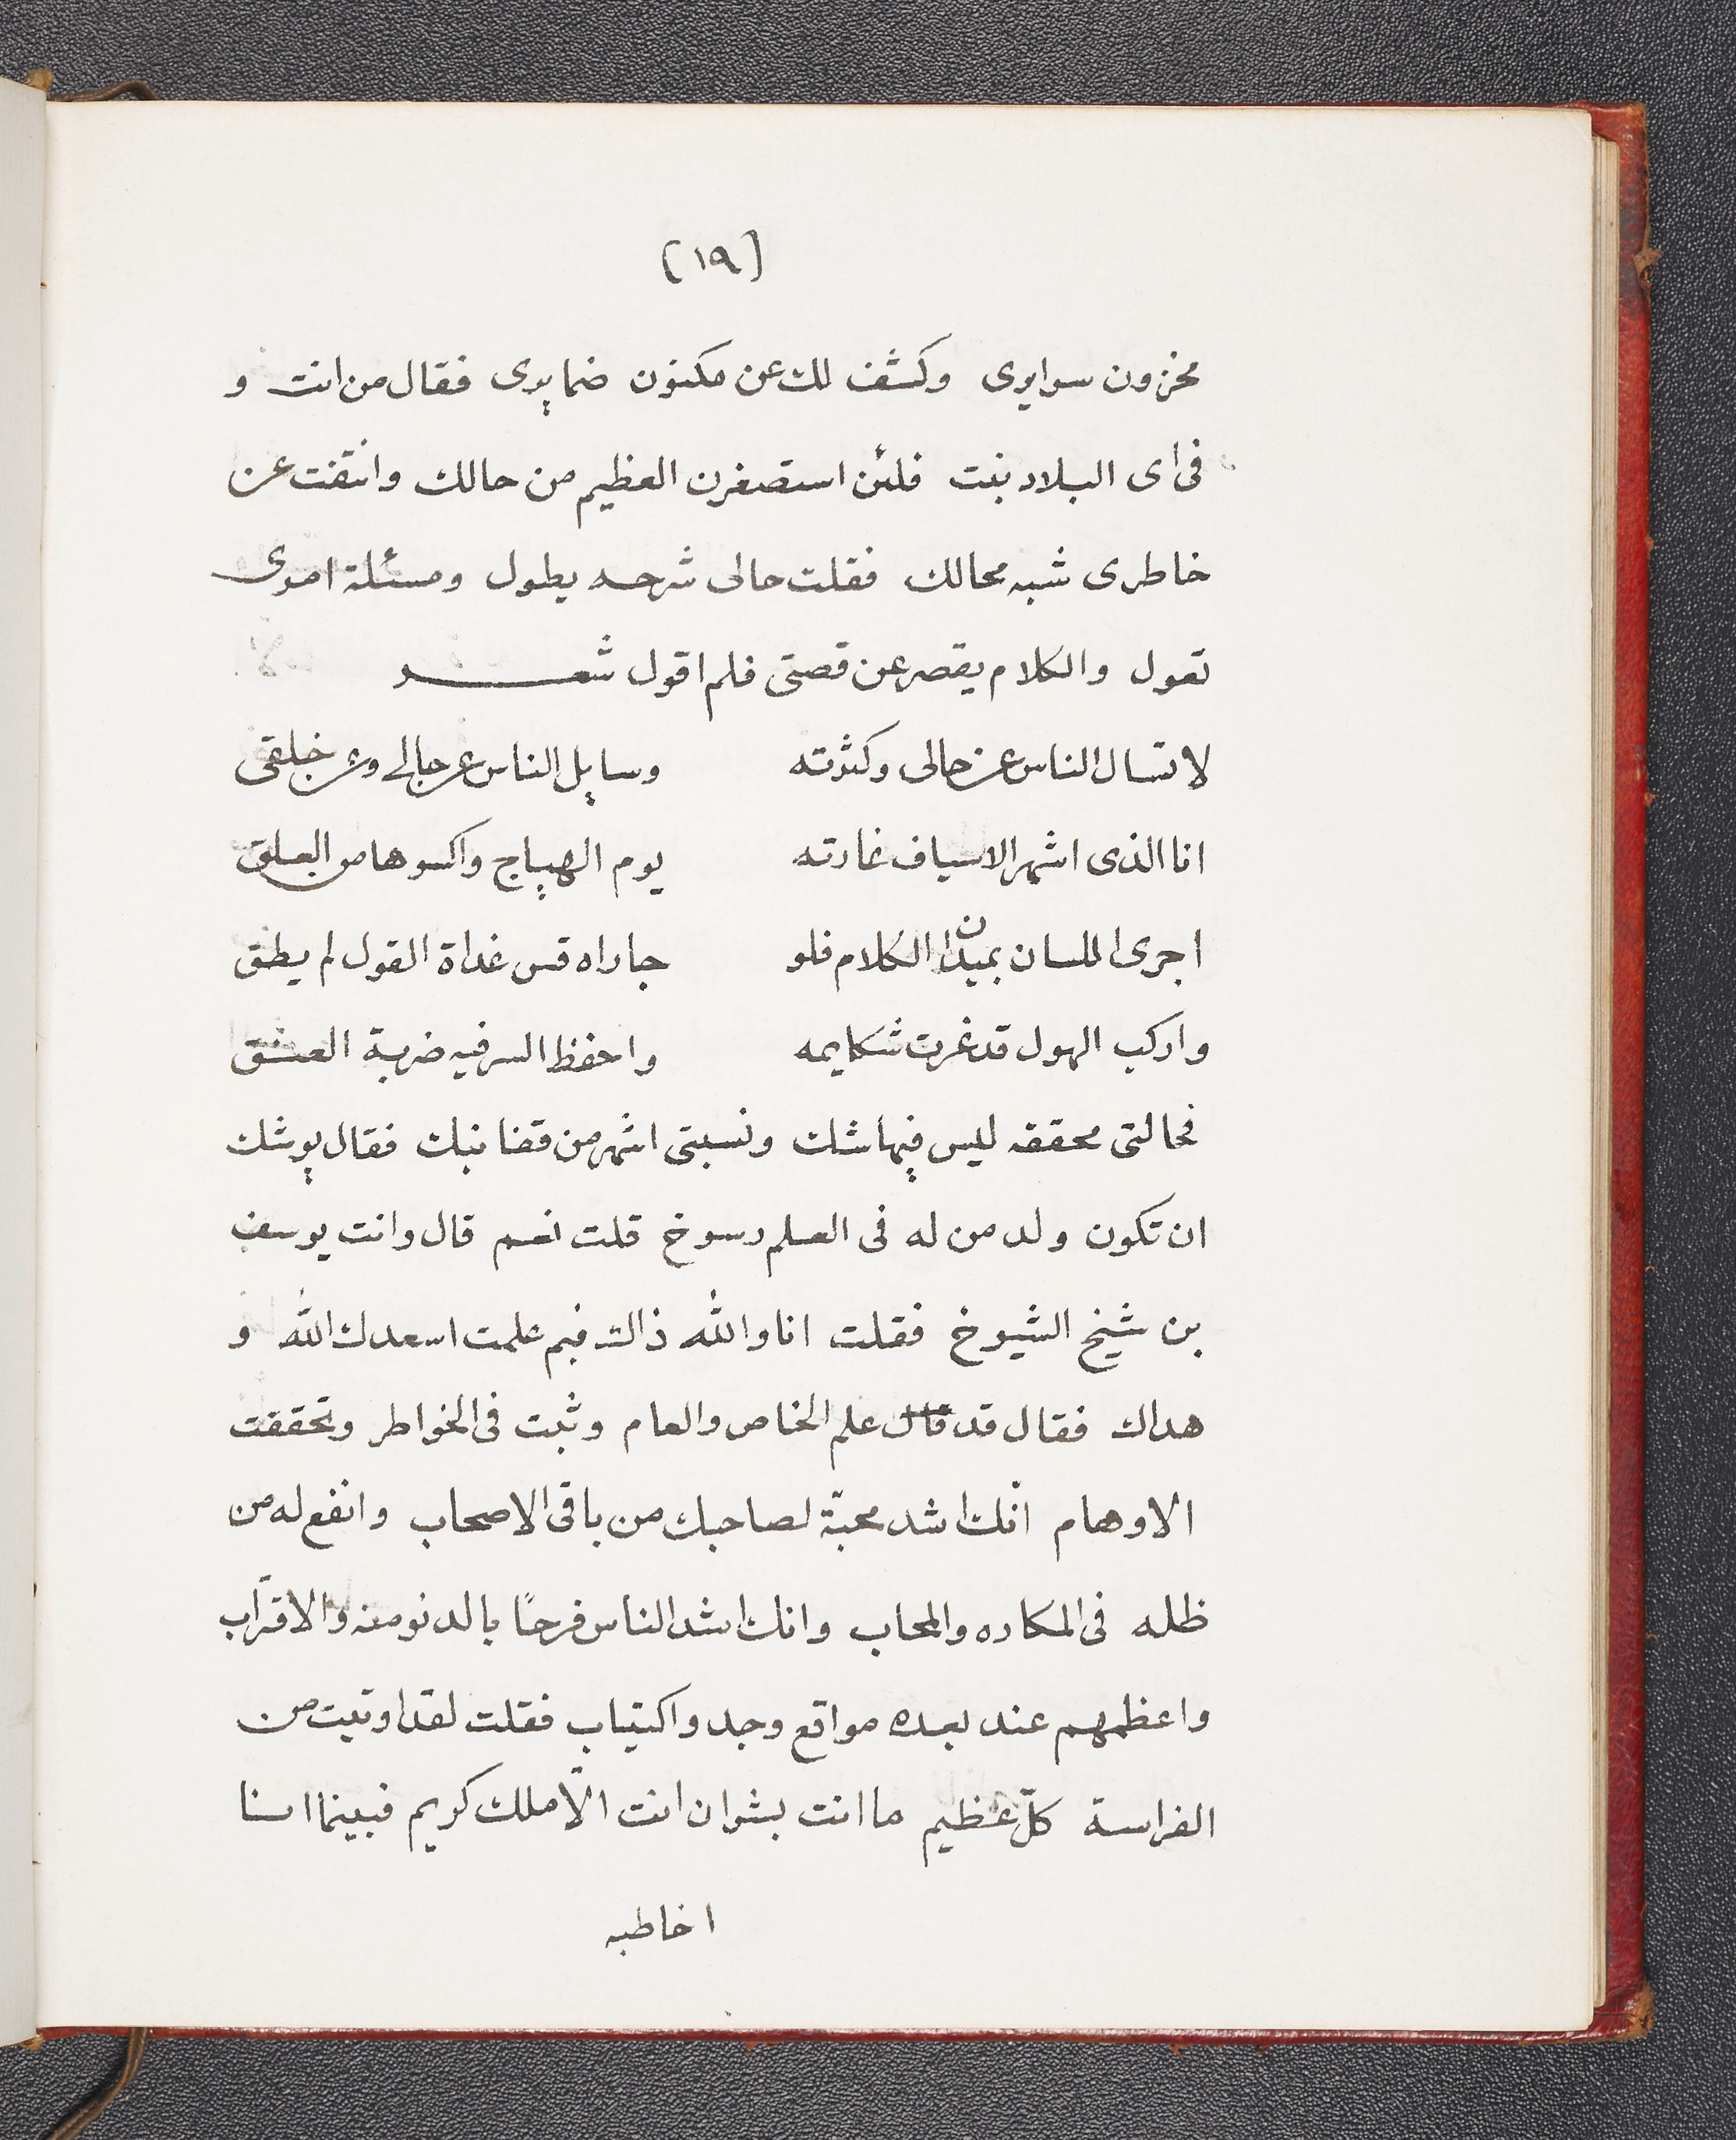 (١٩)
مخزون سرايرى وكشف لك عن مكنون ضمايرى فقال من انت و
فى اى البلاد بنت فلئن استصغرن العظيم من حالك وانتفت عن
خاطرى شبه محالك فقلت حالى شرحه يطول ومسئلة امرى
تعول والكلام يقصر عن قصتى فلم اقول شعر
لا تسال الناس عن حالى وكثرته وسايل الناس عن حالى وعن خلقى
انا الذى اشهر الاسياف غارته يوم الهياج واكسوها من العلق
اجرى اللسان بميدان الكلام فلو جاراه قس غداة القول لم يطق
واركب الهول قد غرت شكايمه واحفظ السر فيه ضربة العنق
فحالتى محققه ليس فيها شك ونسبتى اشهر من قفا نبك فقال يوشك
ان تكون ولد من له فى العلم رسوخ قلت نعم قال وانت يوسف
بن شيخ الشيوخ فقلت انا والله ذاك فبم علمت اسعدك الله و
هداك فقال قد قال علم الخاص والعام وثبت فى الخواطر وتحققت
الاوهام انّك اشد محبّة لصاحبك من باقى الاصحاب وانفع له من
ظله فى المكاره والمحاب وانك اشد الناس فرحًا بالدنو منه والاقتراب
واعظمهم عند بعده مواقع وجد واكتياب فقلت لقد اوتيت من
الفراسة كلّ عظيم ما انت بشر ان انت الّا ملك كريم فبينما انا
اخاطبه